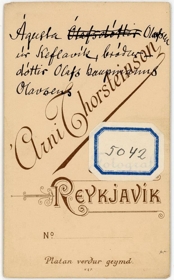 Ágústa Ólafsdóttir Olafsen
úr Keflavík, bróður
dóttir Olafs kaupmanns
Olavsens
Árni Thorsteinsson
5042
REYKJAVÍK
No
Platan verður geymd.